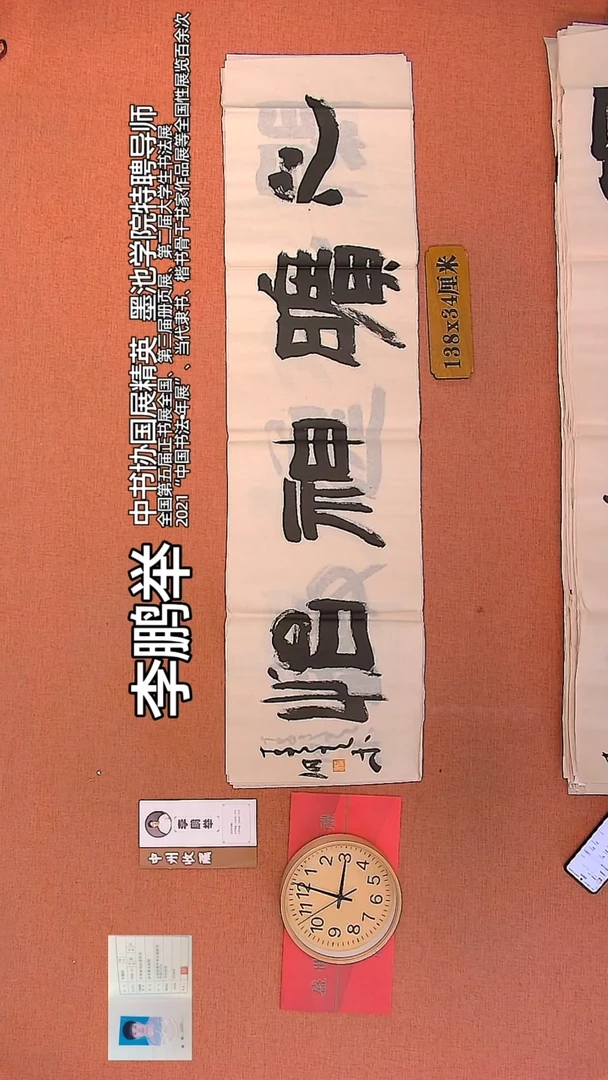 李鹏举
中书协国展精英 墨池学院特聘导师
全国第五届正书展全国、第三届册页展、第二届大学生书法展
2021“中国书法·年展”、当代隶书、楷书骨干书家作品展等全国性展览百余次
心曠神怡
138x34厘米
李鹏举
中州收藏
12
1
2
3
4
5
6
7
8
9
10
11